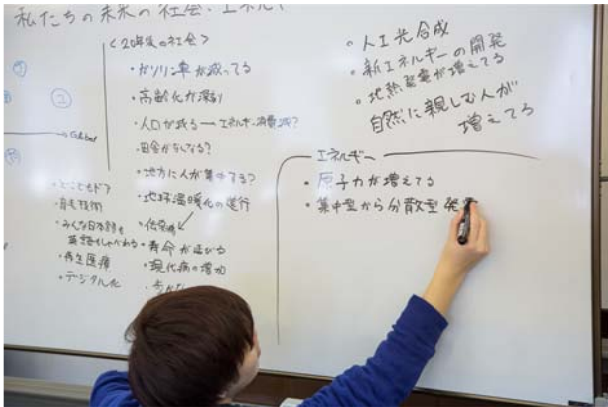 私たちの未来の社会・エネルギー
<20年後の社会>
・ガソリン車が減ってる
・高齢化が深刻
・人口が減る→エネルギー消費減?
・田舎がなくなる?
・地方に人が集中してる?
・地球温暖化の進行
・伝染病
・寿命が延びる
・現代病の増加
②
Global
・どこでもドア
・自宅技術
・みんな日本語も
英語もしゃべれる
・再生医療
・デジタル化
・人工光合成
・新エネルギーの開発
・地熱発電が増えてる
自然に親しむ人が
増えてる
エネルギー
・原子力が増えてる
・集中型から分散型発